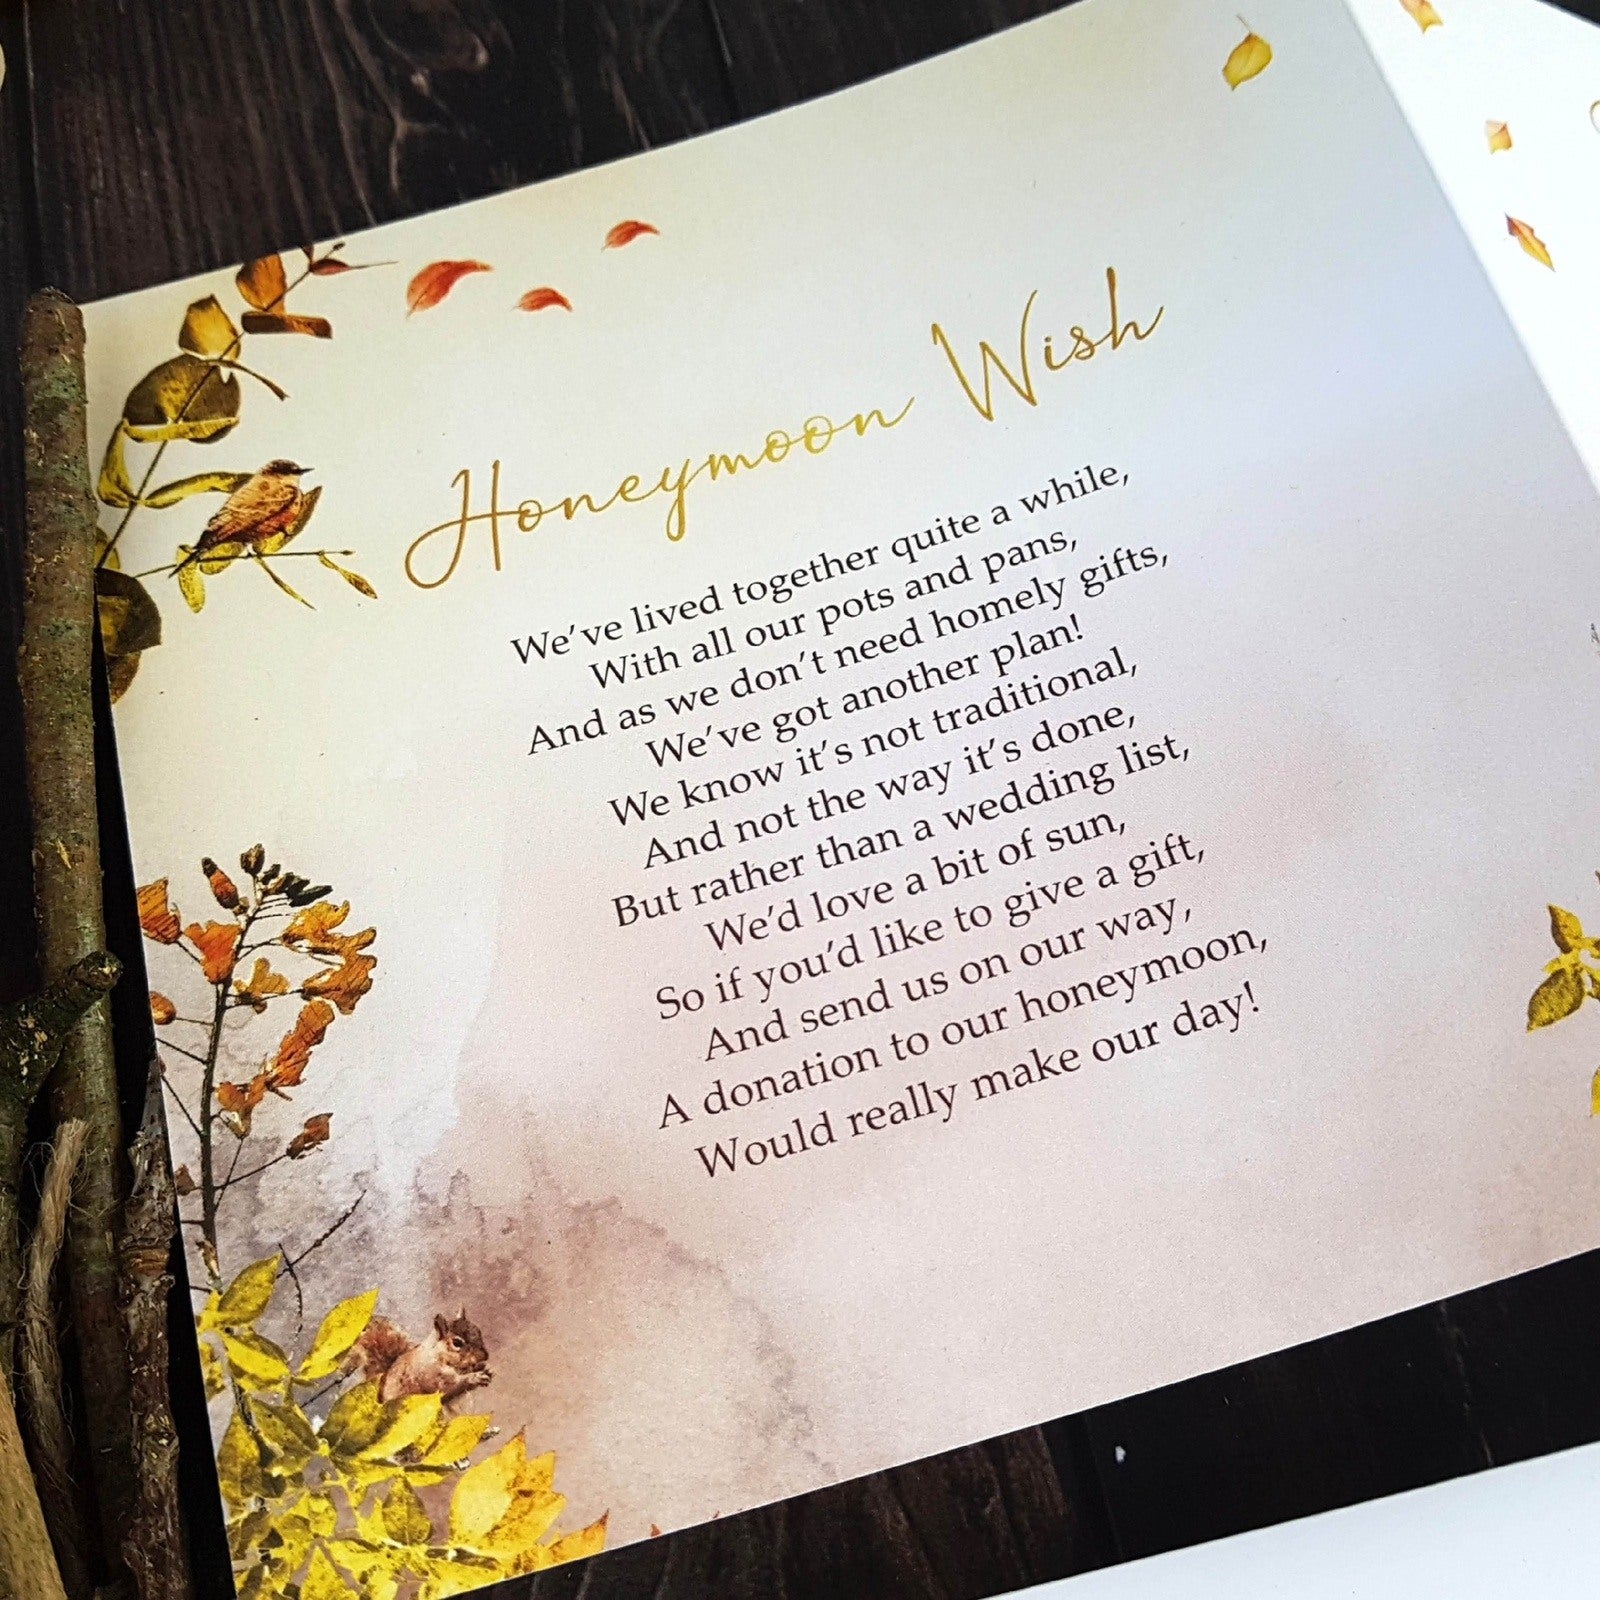 Honeymoon Wish
We've lived together quite a while,
With all our pots and pans,
And as we don't need homely gifts,
We've got another plan!
We know it's not traditional,
And not the way it's done,
But rather than a wedding list,
We'd love a bit of sun,
So if you'd like to give a gift,
And send us on our way,
A donation to our honeymoon,
Would really make our day!